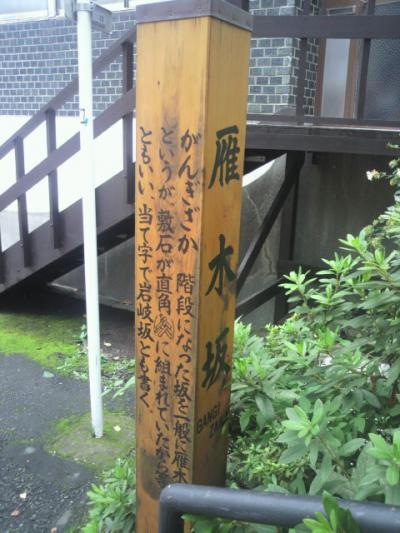 雁木坂
GANGI
ZAKA
がんぎざか 階段になった坂を一般に雁木坂
というが、敷石が直角に組まれていたから
ともいい、当て字で岩岐坂とも書く。